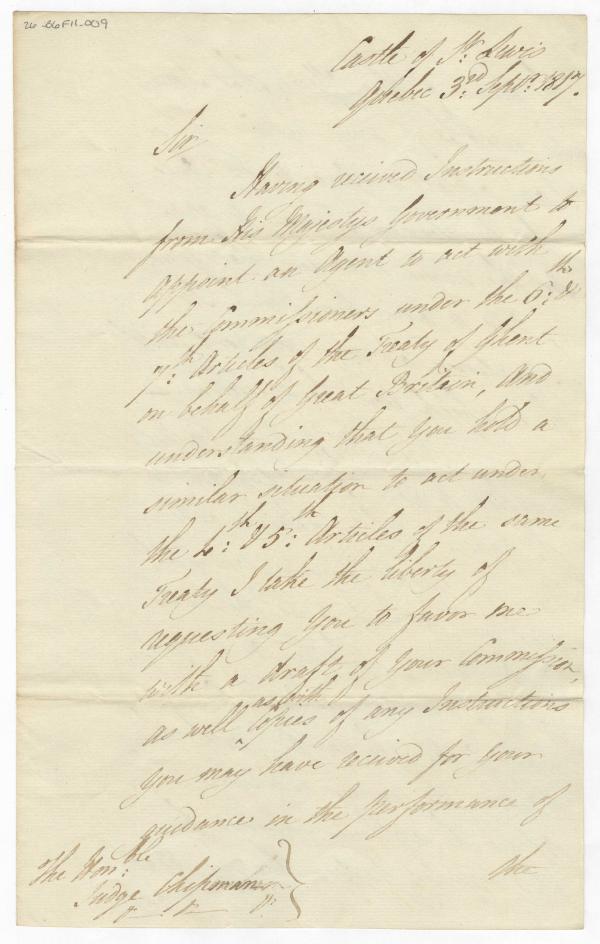 26-66F11-009
Castle of St. Lewis
Quebec 3rd Septr. 1817.
Sir
Having received Instructions
from His Majestys Government to
appoint an Agent to act with
the Commissioners under the 6:th &
7:th Articles of the Treaty of Ghent
on behalf of Great Britain, and
understanding that you hold a
similar situation to act under
the 4:th & 5:th Articles of the same
Treaty I take the liberty of
requesting you to favor me
with a draft of your Commission,
as well ^ as with copies of any Instructions
you may have received for your
guidance in the performance of
the
The Hon:ble
Judge Chipman